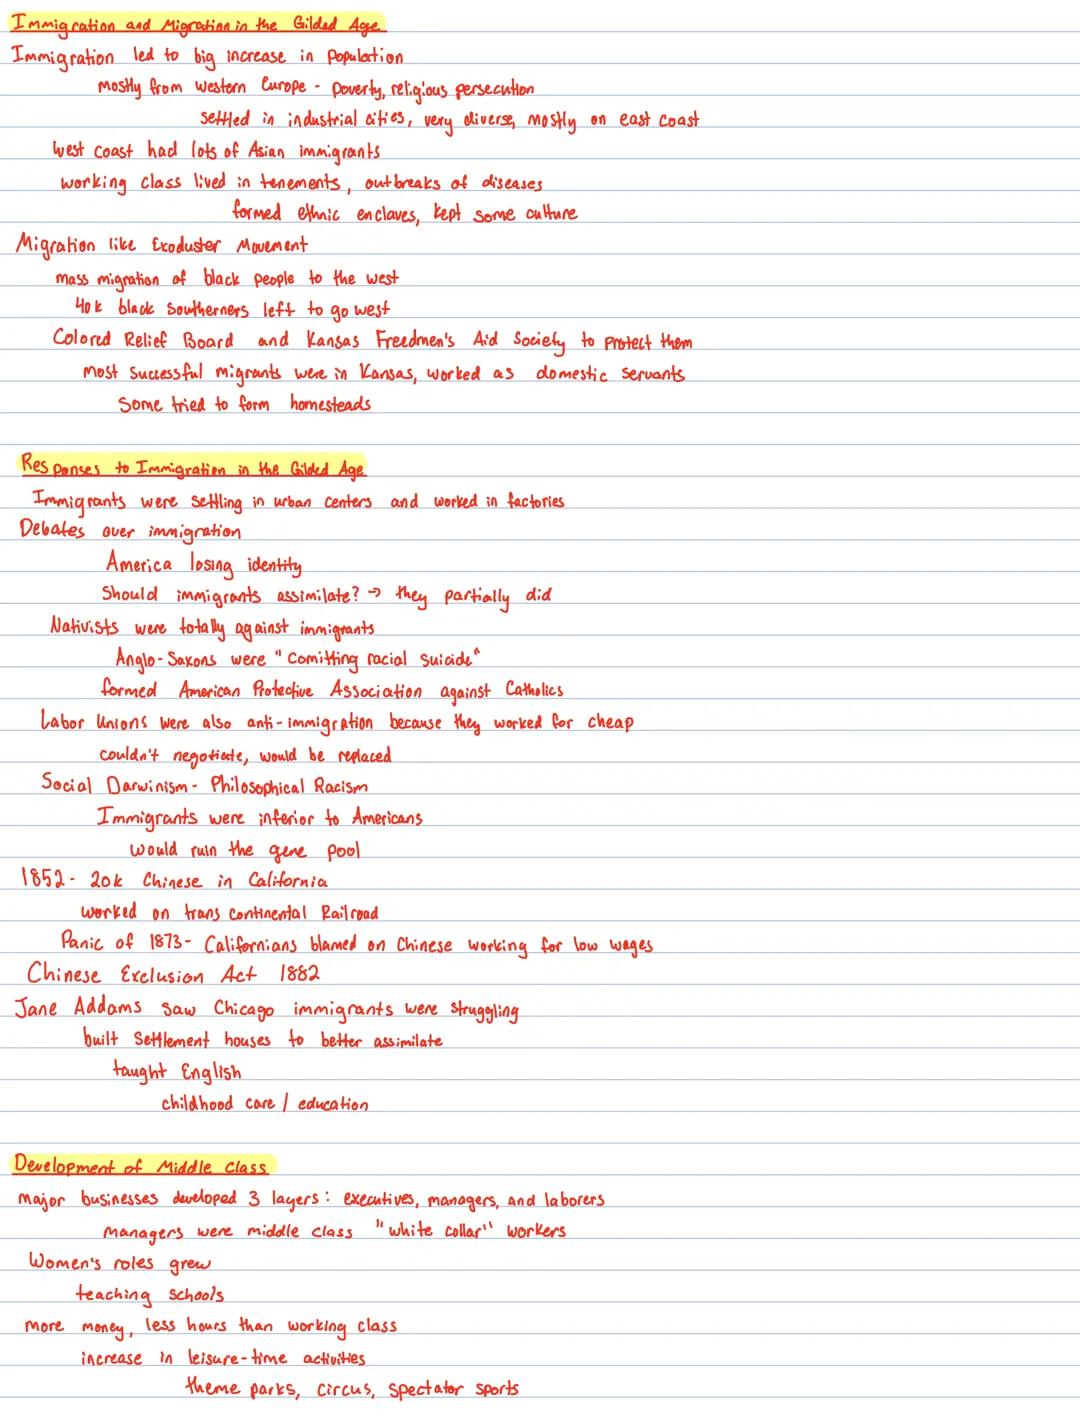 Immigration and Migration in the Gilded Age
Immigration led to big increase in Population
mostly from western Europe - poverty, religious persecution
settled in industrial cities, very diverse, mostly on east coast
West coast had lots of Asian immigrants
working class lived in tenements, outbreaks of diseases
formed ethnic enclaves, kept some culture
Migration like Exoduster Movement
mass migration of black people to the west
40k black Southerners left to go west
Colored Relief Board and Kansas Freedmen's Aid Society to protect them
most successful migrants were in Kansas, worked as domestic servants
Some tried to form homesteads
Responses to Immigration in the Gilded Age
Immigrants were settling in urban centers and worked in factories
Debates over immigration
America losing identity
Should immigrants assimilate? → they partially did
Nativists were totally against immigrants
Anglo-Saxons were "comitting racial suicide"
formed American Protective Association against Catholics
Labor Unions were also anti-immigration because they worked for cheap
couldn't negotiate, would be replaced
Social Darwinism - Philosophical Racism
Immigrants were inferior to Americans
would ruin the gene pool
1852 - 20k Chinese in California
worked on transcontinental Railroad
Panic of 1873 - Californians blamed on Chinese working for low wages
Chinese Exclusion Act 1882
Jane Addams saw Chicago immigrants were struggling
built Settlement houses to better assimilate
taught English
childhood care / education
Development of Middle Class
major businesses developed 3 layers: executives, managers, and laborers
managers were middle class "white collar" workers
Women's roles grew
teaching schools
more money, less hours than working class
increase in leisure-time activities
theme parks, circus, spectator sports